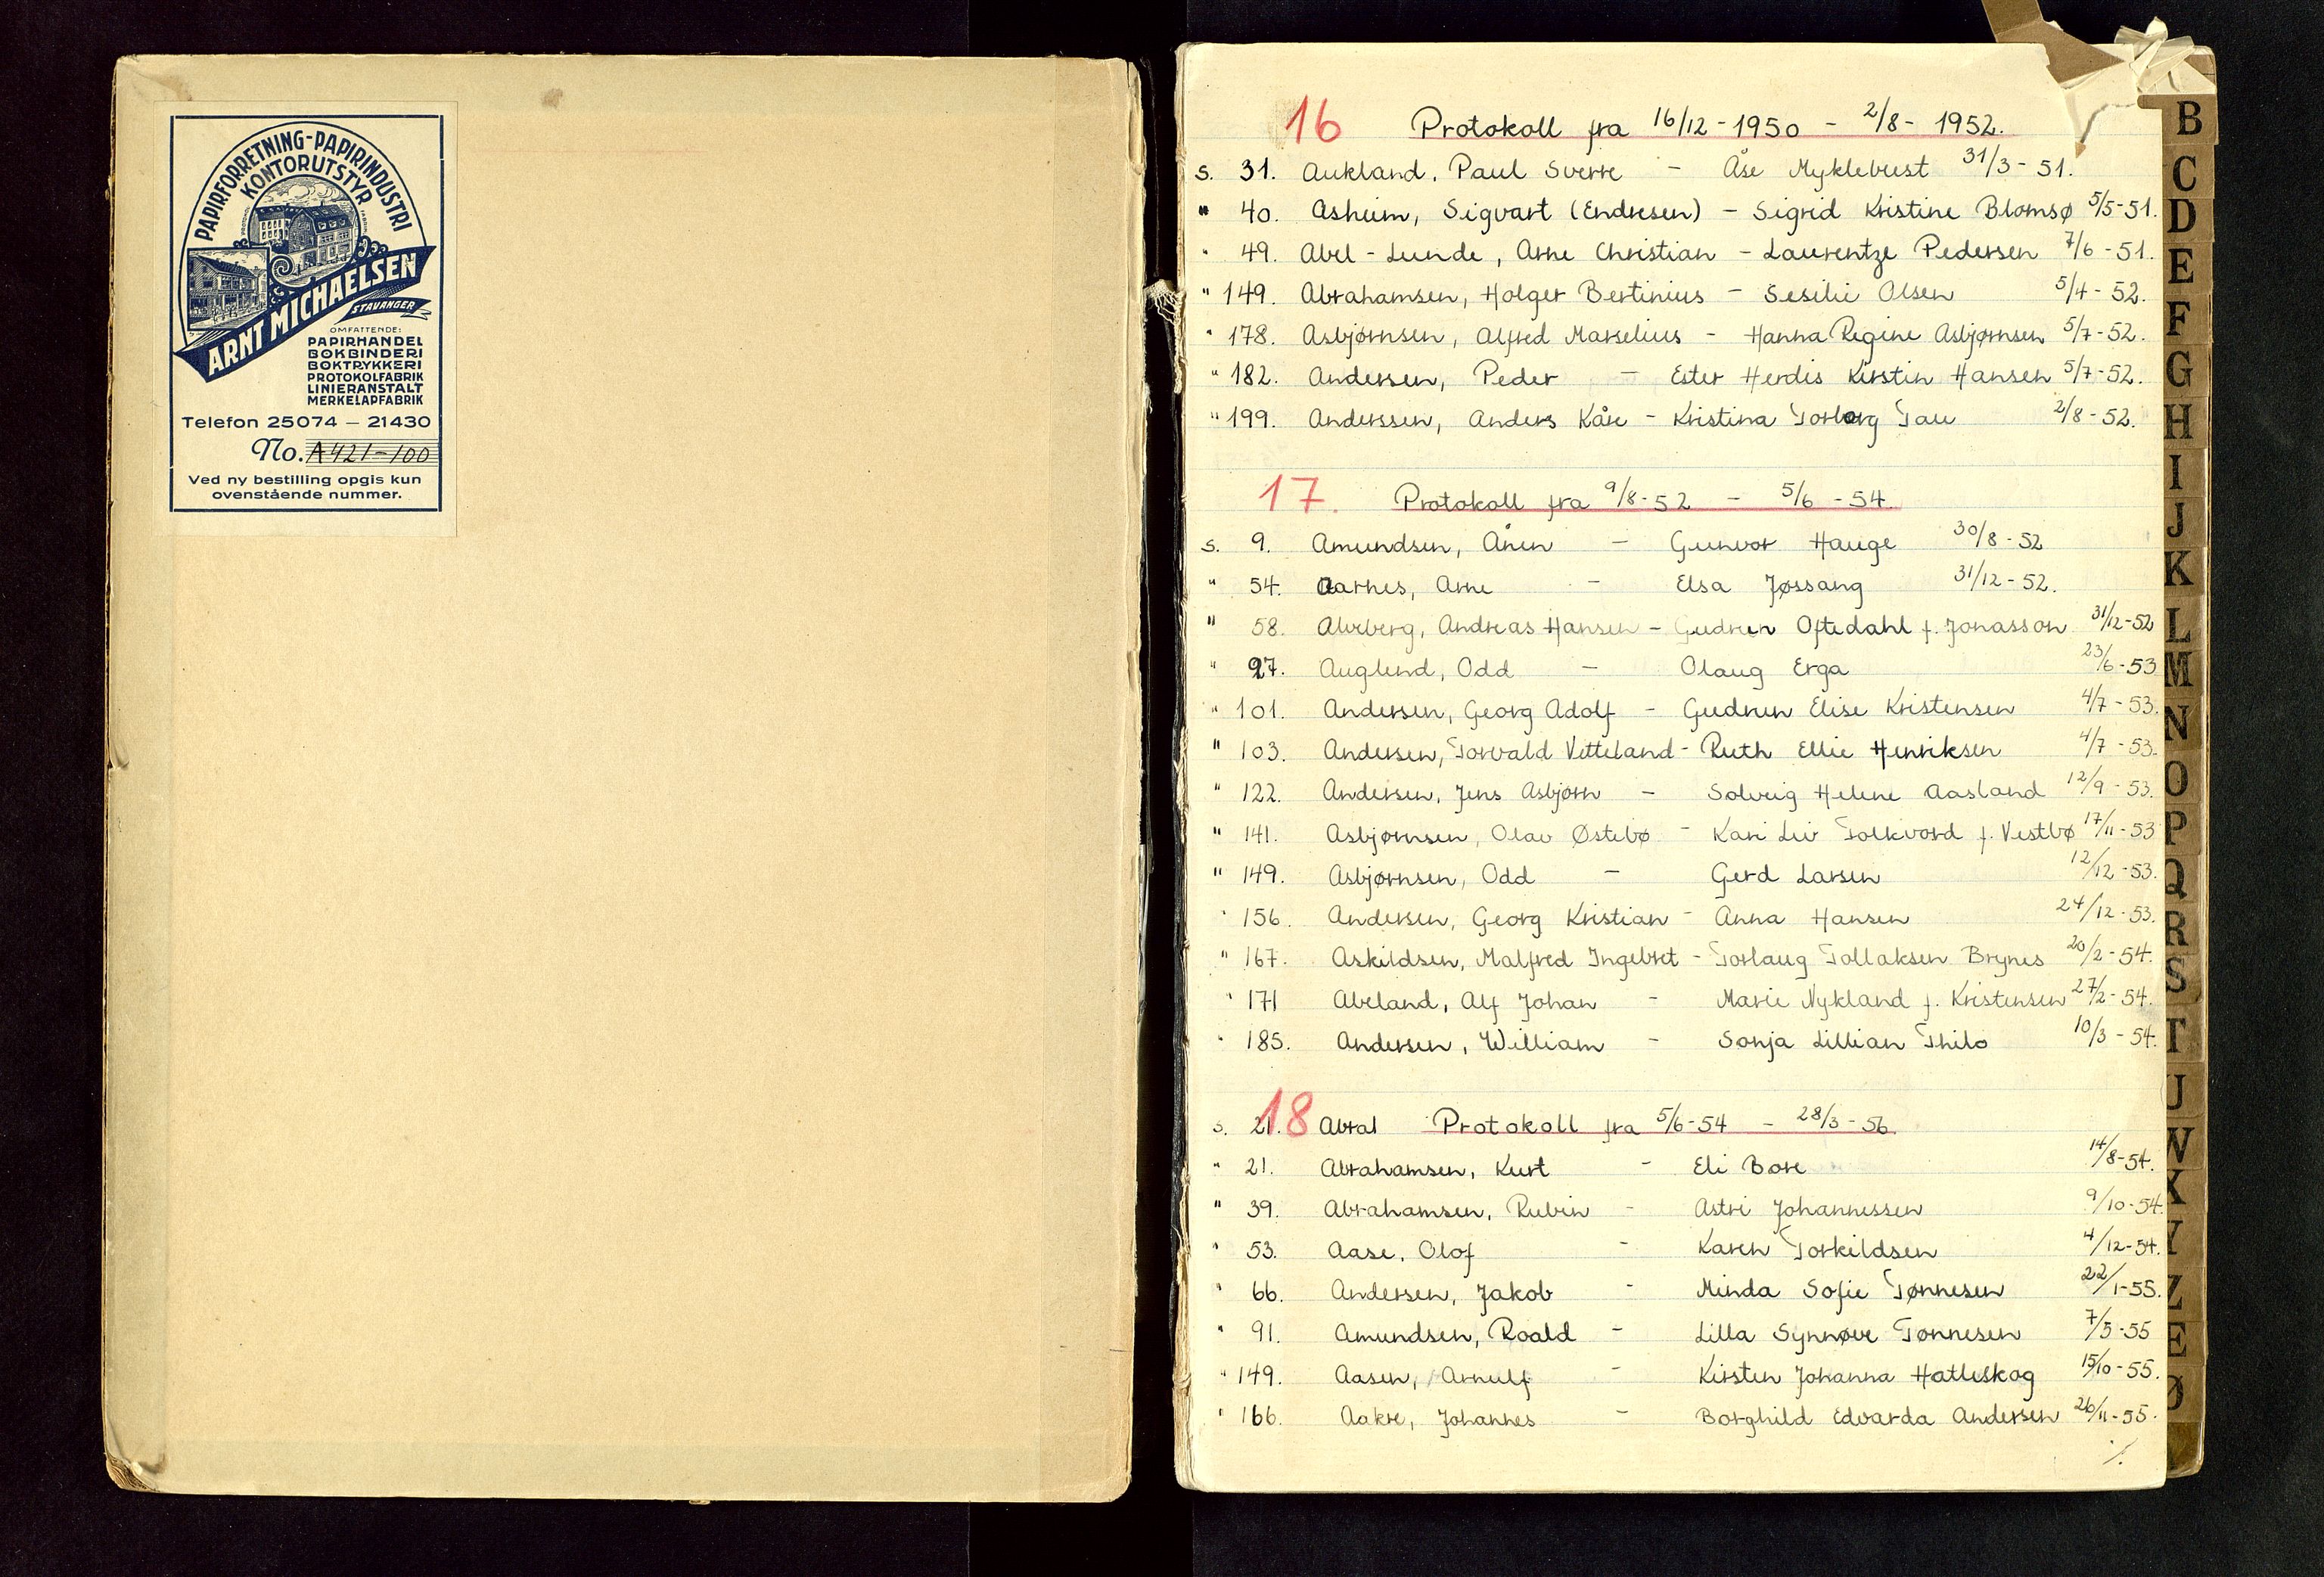 PAPIRFORRETNING-PAPIRINDUSTRI
KONTORUTSTYR
ARNT MICHAELSEN
STAVANGER
OMFATTENDE:
PAPIRHANDEL
BOKBINDERI
BOKTRYKKERI
PROTOKOLFABRIK
LINIERANSTALT
MERKELAPFABRIK
Telefon 25074 – 21430
No. A421-100
Ved ny bestilling opgis kun
ovenstående nummer.
16 Protokoll fra 16/12-1950 - 2/8-1952.
s. 31. Aukland, Paul Sverre - Åse Myklebust 31/3-51.
" 40. Asheim, Sigvart (Endresen) - Sigrid Kristine Blomsø 5/5-51.
" 49. Abel-Lunde, Arne Christian - Laurentze Pedersen 7/6-51.
" 149. Abrahamsen, Holger Bertinius - Sesilie Olsen 5/4-52.
" 178. Asbjørnsen, Alfred Marselius - Hanna Regine Asbjørnsen 5/7-52.
" 182. Andersen, Peder - Ester Herdis Kirstin Hansen 5/7-52.
" 199. Anderssen, Anders Kåre - Kristina Torborg Tau 2/8-52.
17. Protokoll fra 9/8-52 - 5/6-54.
s. 9. Amundsen, Ånen - Gunvor Hauge 30/8-52
" 54. Aarnes, Arne - Elsa Jøssang 31/12-52.
" 58. Ahrberg, Andreas Hansen - Gudrun Oftedahl f. Jonasson 31/12-52
" 97. Auglend, Odd - Olaug Erga 23/6-53
" 101. Andersen, Georg Adolf - Gudrun Elise Kristensen 4/7-53.
" 103. Andersen, Torvald Vetteland - Ruth Ellie Henriksen 4/7-53.
" 122. Andersen, Jens Asbjørn - Solveig Helene Aasland 12/9-53.
" 141. Asbjørnsen, Olav Østebø - Kari Liv Folkvord f. Vestbø 17/11-53
" 149. Asbjørnsen, Odd - Gerd Larsen 12/12-53.
" 156. Andersen, Georg Kristian - Anna Hansen 24/12-53.
" 167. Askildsen, Malfred Ingebret - Torlaug Tollaksen Brynes 20/2-54.
" 171 Abeland, Alf Johan - Marie Nykland f. Kristensen 27/2-54.
" 185. Andersen, William - Sonja Lillian Thilo 10/3-54.
s. 21. 18 Abral Protokoll fra 5/6-54 - 28/3-56
" 21. Abrahamsen, Kurt - Eli Bore 14/8-54.
" 39. Abrahamsen, Rubin - Astri Johannessen 9/10-54.
" 53. Aase, Olof - Karen Torkildsen 4/12-54.
" 66. Andersen, Jakob - Minda Sofie Tønnesen 22/1-55.
" 91. Amundsen, Roald - Lilla Synnøve Tønnesen 7/5-55
" 149. Aasen, Arnulf - Kirsten Johanna Hatleskog 15/10-55.
" 166. Aakre, Johannes - Borghild Edvarda Andersen 26/11-55.
./.
B
C
D
E
F
G
H
I
J
K
L
M
N
O
P
Q
R
S
T
U
W
X
Y
Z
Æ
Ø